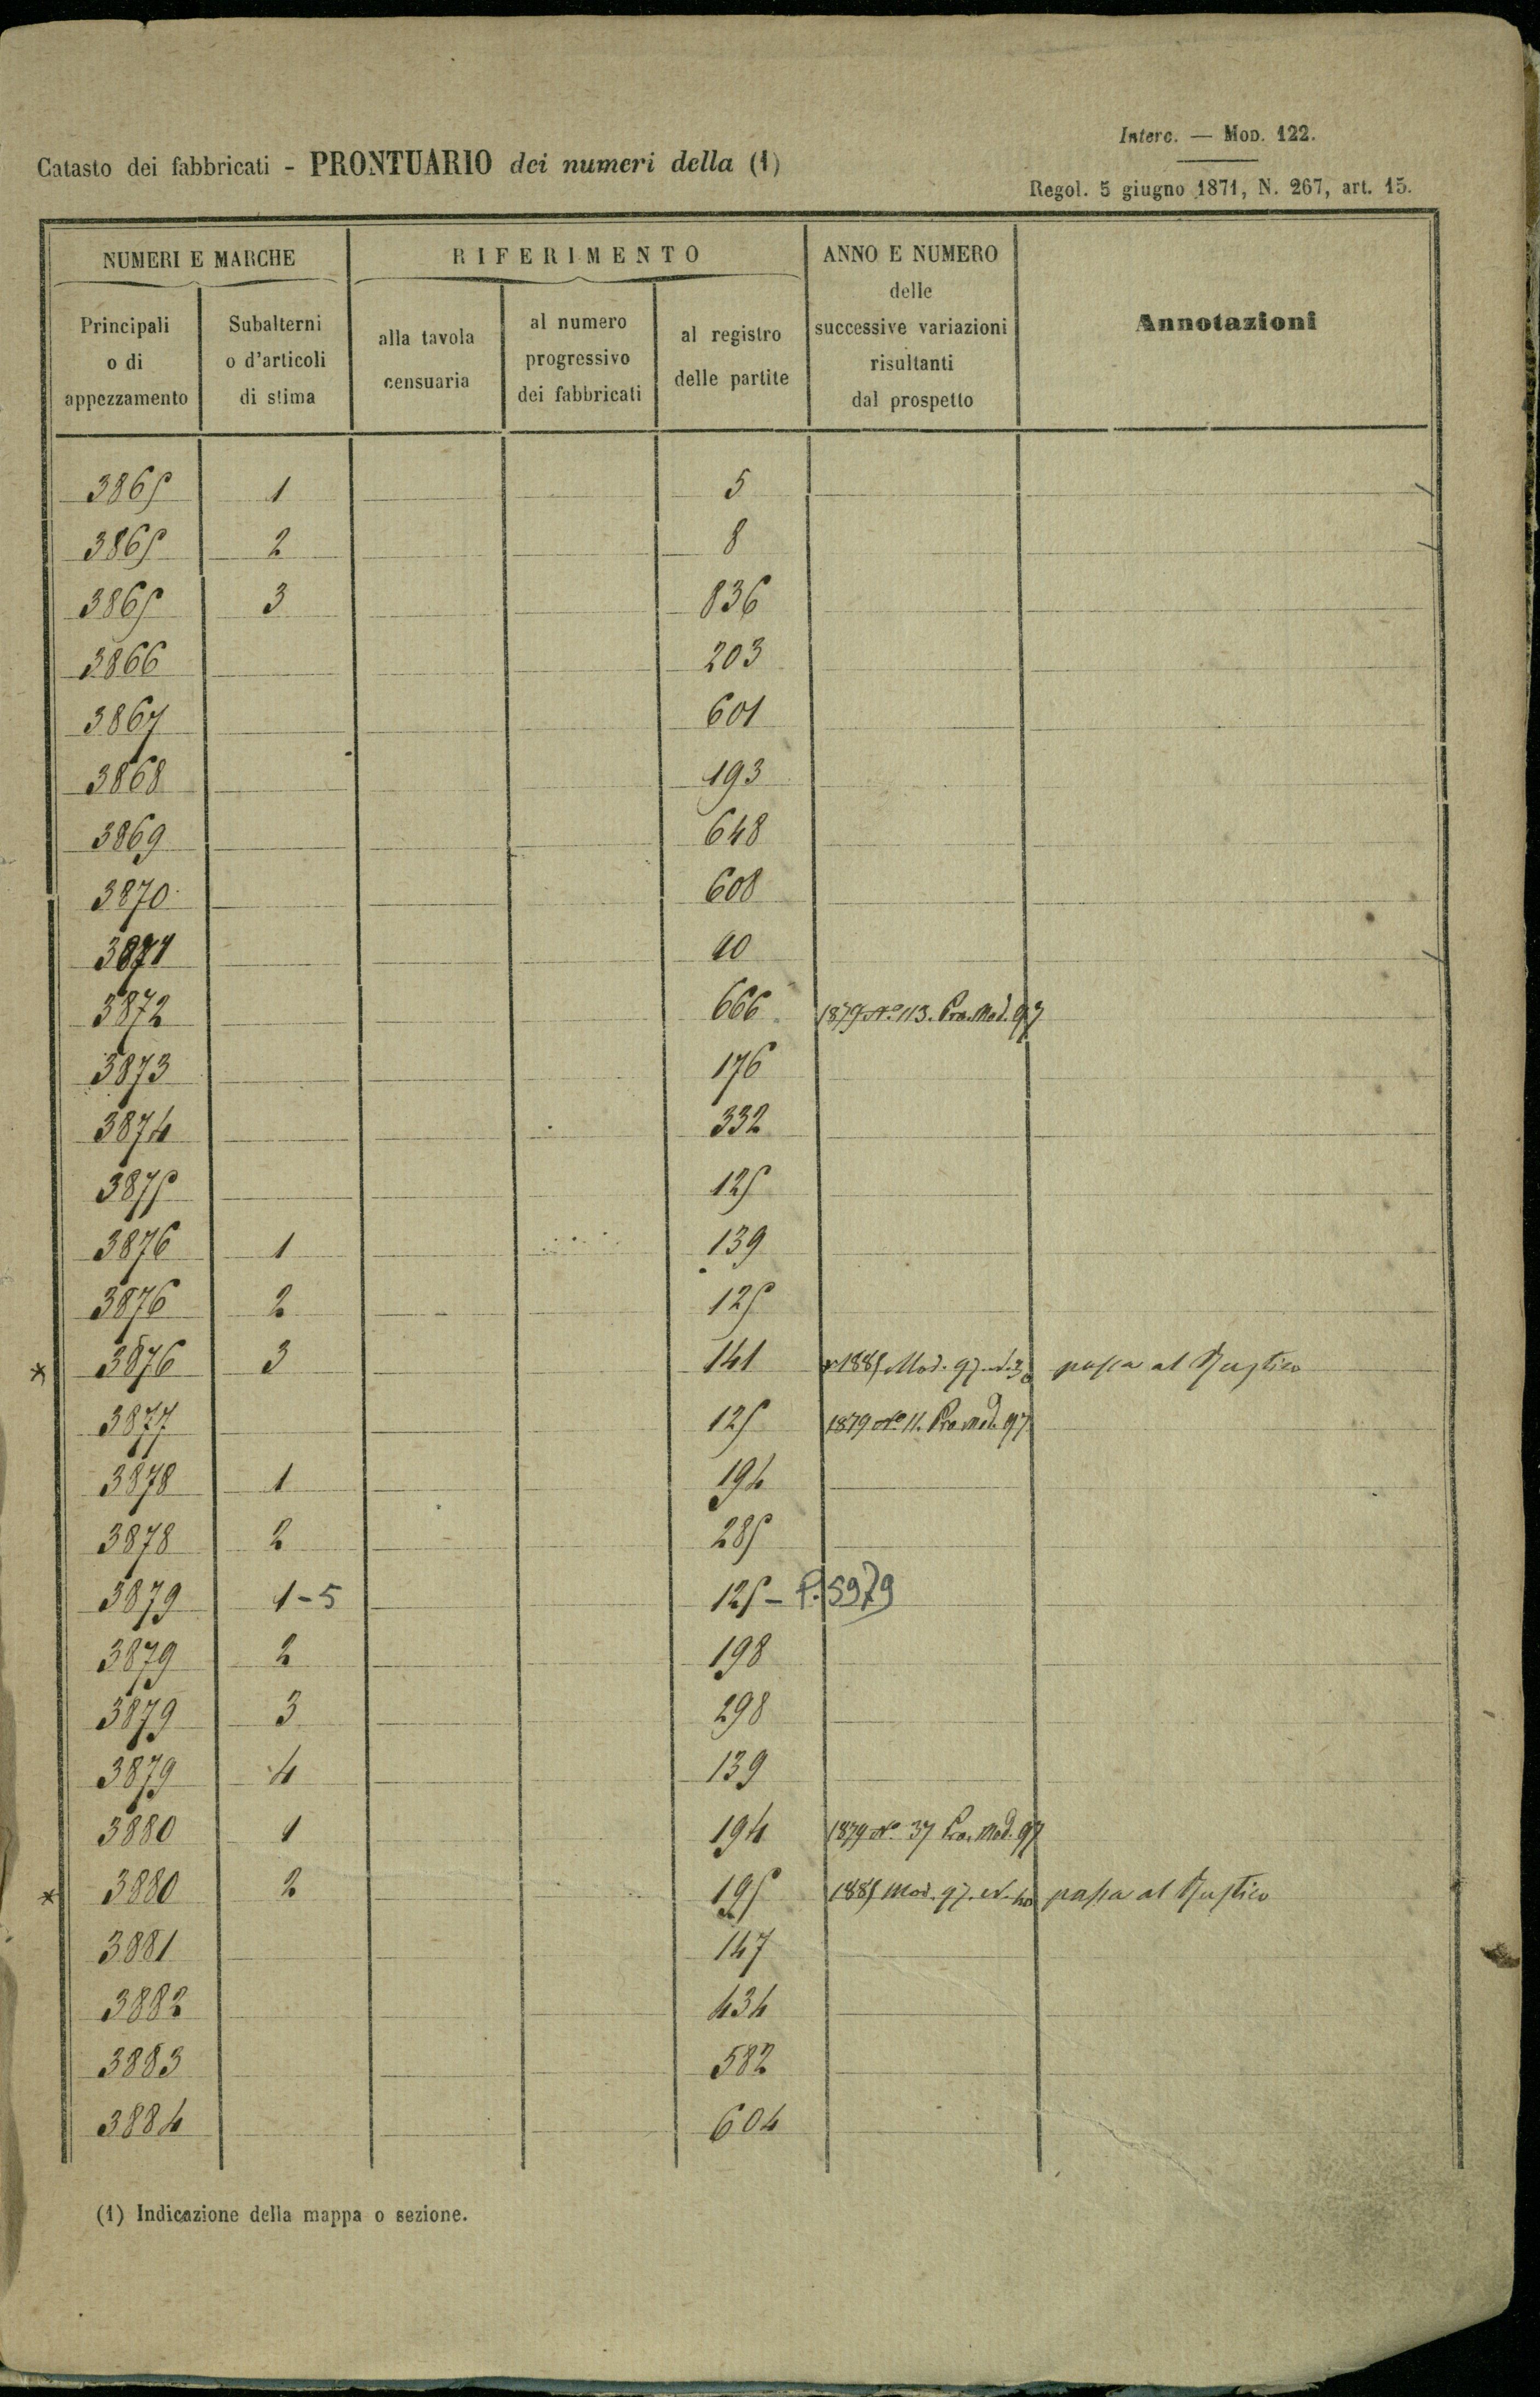 Interc. — Mod. 122.
Catasto dei fabbricati - PRONTUARIO dei numeri della (1)
Regol. 5 giugno 1871, N. 267, art. 15.
NUMERI E MARCHE
RIFERIMENTO
ANNO E NUMERO
delle
successive variazioni
risultanti
dal prospetto
Annotazioni
Principali
o di
appezzamento
Subalterni
o d'articoli
di stima
alla tavola
censuaria
al numero
progressivo
dei fabbricati
al registro
delle partite
3865 1 5
3865 2 8
3865 3 836
3866 203
3867 601
3868 193
3869 648
3870 608
3871
3872 666 1879 No. 113. Pro. Mod. 97
3873 176
3874 332
3875 125
3876 1 139
3876 2 125
* 3876 3 141 1885 Mod. 97. passa al Rustico
3877 125 1879 No. 11. Pro. Mod. 97
3878 1 194
3878 2 285
3879 1-5 125 - P. 5979
3879 2 198
3879 3 298
3879 4 139
3880 1 194 1879 No. 37 Pro. Mod. 97
* 3880 2 195 1885 Mod. 97. N. 40 passa al Rustico
3881 147
3882 434
3883 582
3884 604
(1) Indicazione della mappa o sezione.